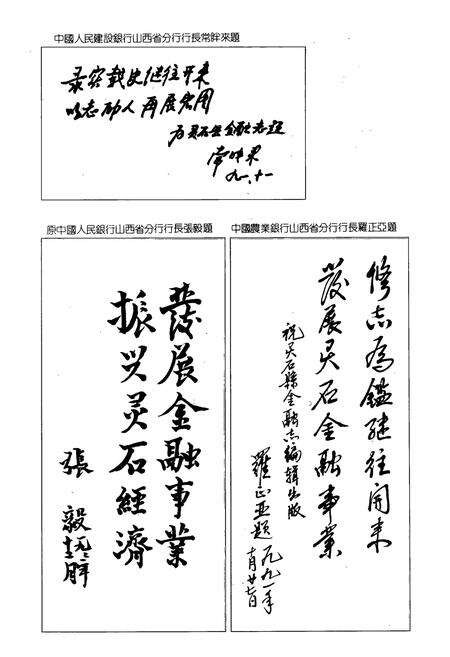 中國人民建設銀行山西省分行行長常畔來題
录实载史继往开来
以志励人再展宏图
为灵石县金融志题
九一.十一
原中國人民銀行山西省分行行長張毅題
發展金融事業
振兴灵石經濟
張毅
中國農業銀行山西省分行行長羅正亞題
修志為鑑继往開来
發展灵石金融事業
祝灵石縣金融志編輯出版
羅正亚題一九九一年
十月廿七日